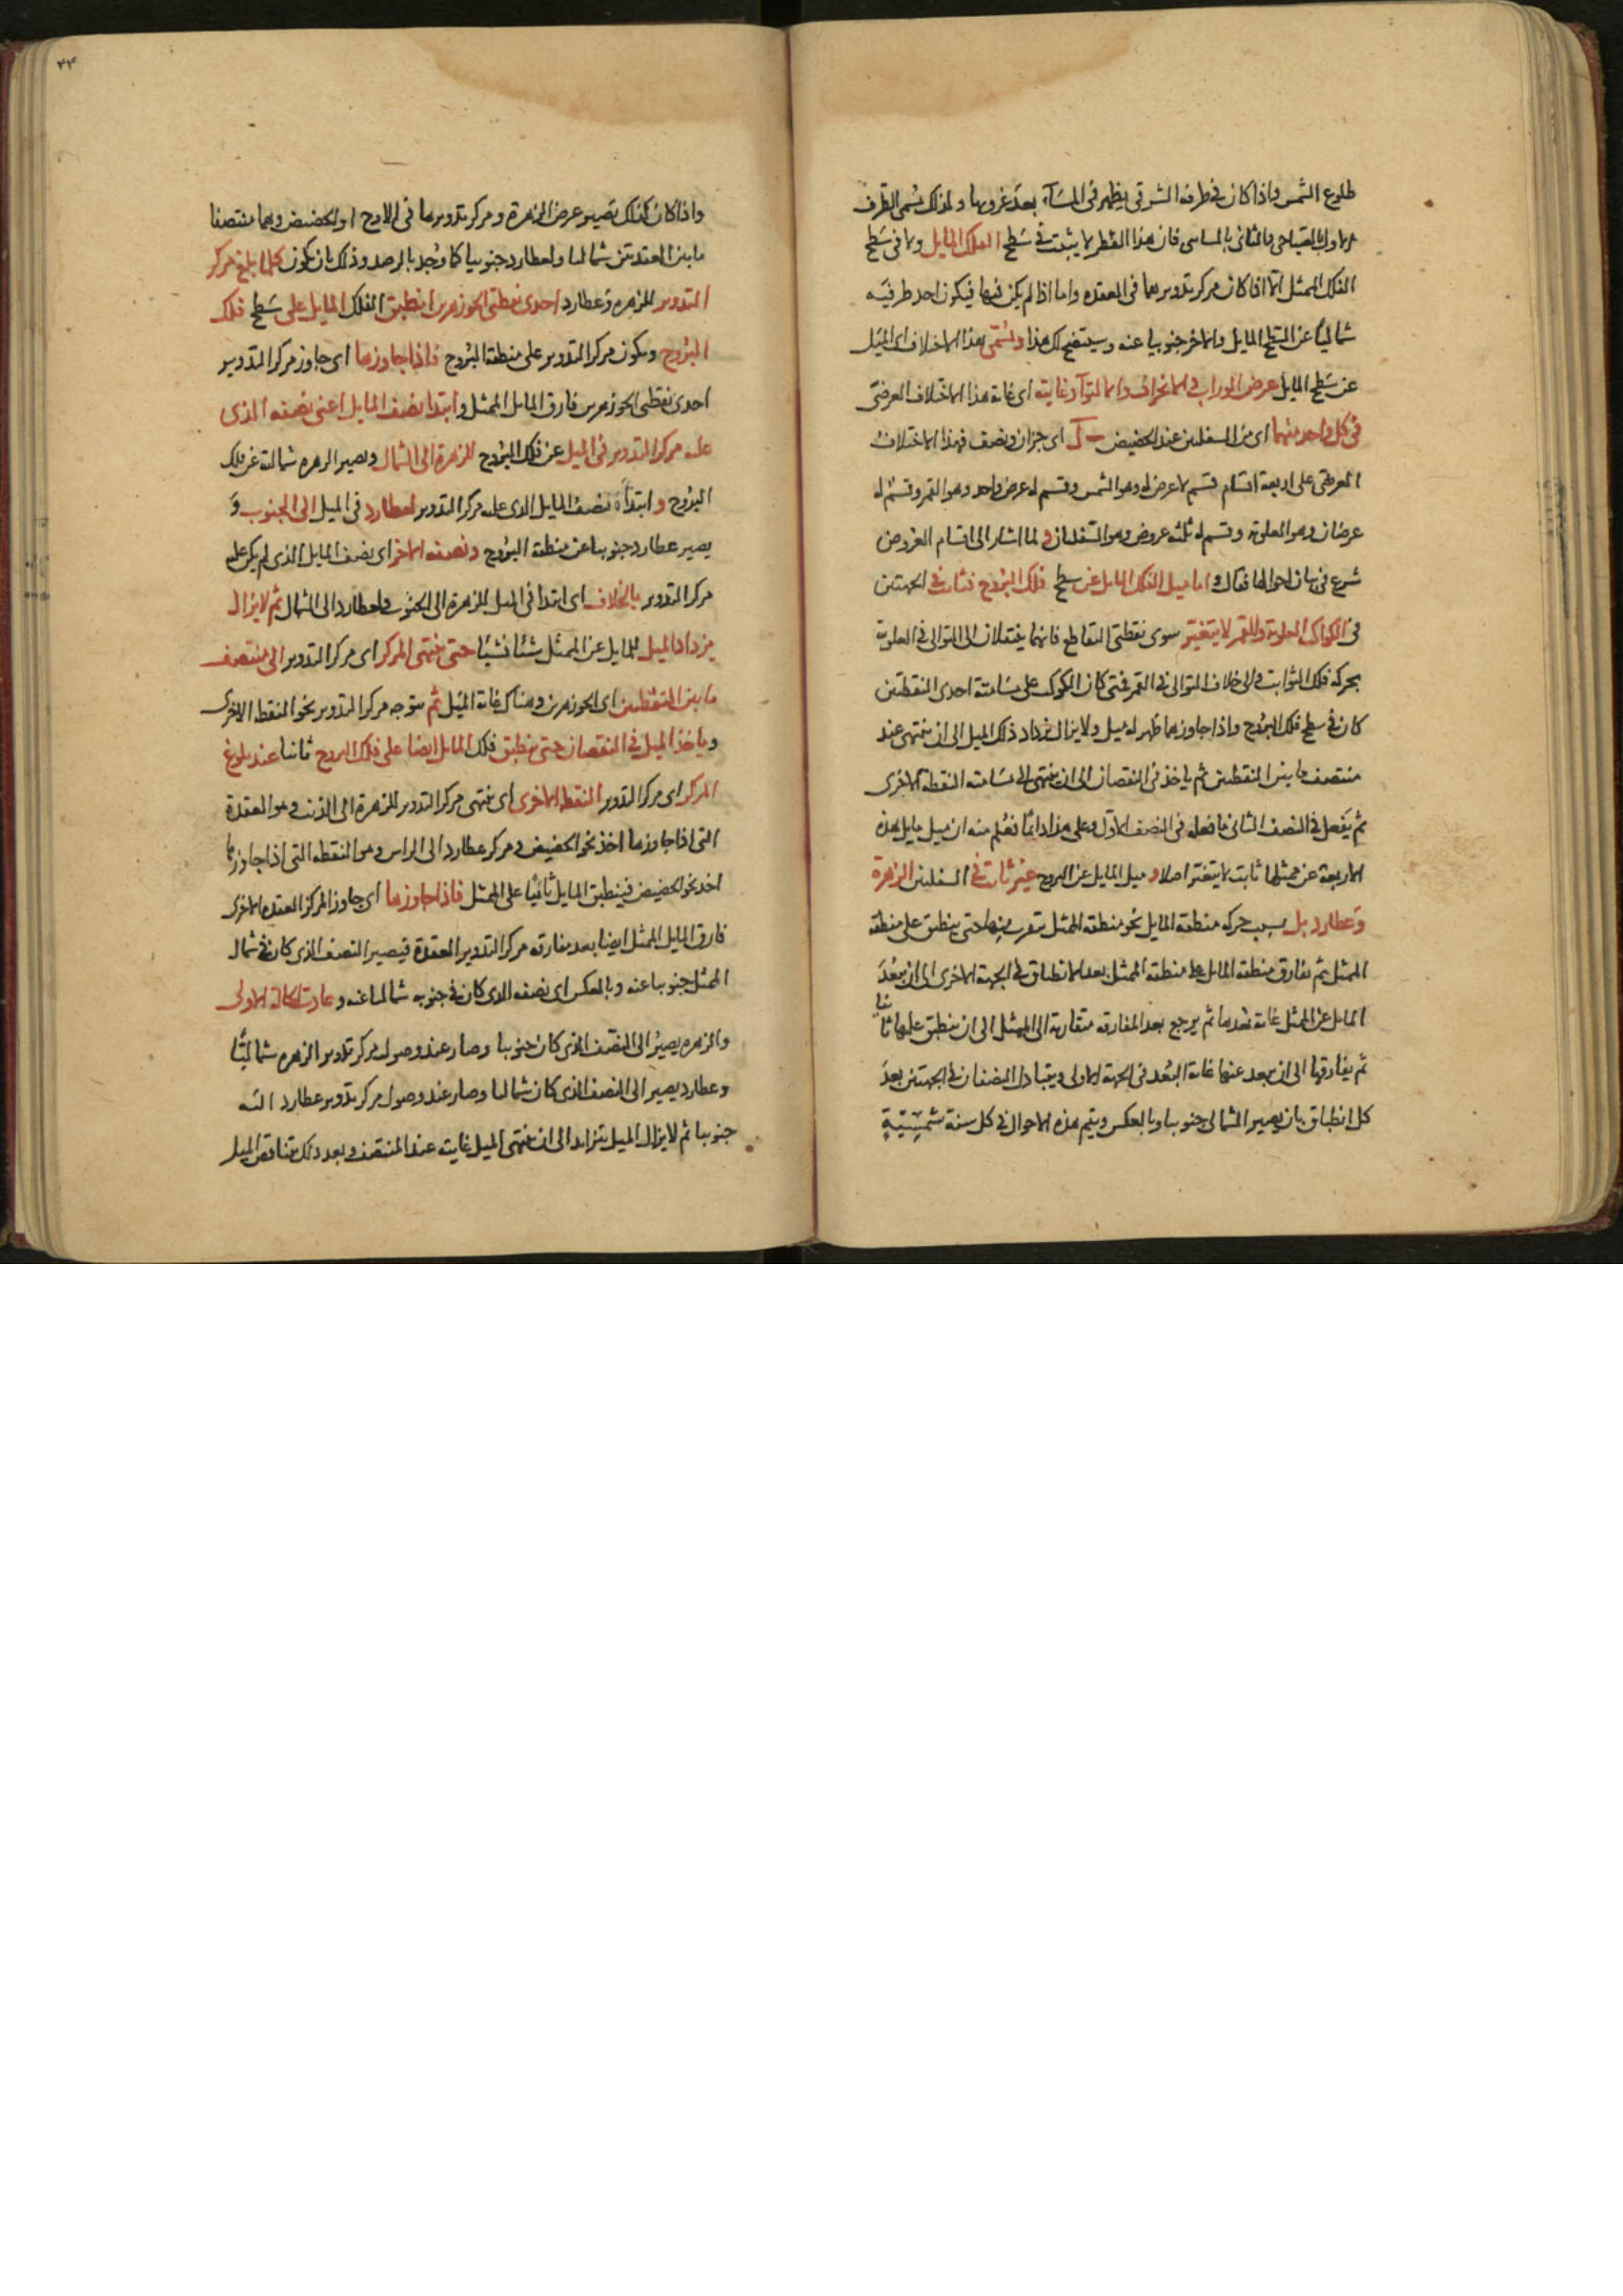 طلوع الشمس واذا كان في طرفه الشرقي يظهر في المسآء بعد غروبها ولذلك يسمى الطرف
الاول بالصباحي والثاني بالمسامي فان هذا القطر لا يثبت في سطح الفلك المايل ولا في سطح
الفلك الممثل الا اذا كان مركز تدويرهما في العقده واما اذا لم يكن فيها فيكون احد طرفيه
شماليا عن السطح المايل والاخر جنوبيا عنه وسيتضح لك هذا ويسمى هذا الاختلاف اى الميل
عن سطح المايل عرض الوراب والانحراف والالتوآ وغايته اى غاية هذا الاختلاف العرضى
في كل واحد منهما اى من السفليين عند الحضيض ب ل اى جزان ونصف فهذا الاختلاف
العرضى على اربعة اقسام قسم لا عرض له وهو الشمس وقسم له عرض واحد وهو القمر وقسم له
عرضان وهو العلوية وقسم له ثلثه عروض وهو السفليان و لما اشار الى اقسام العروض
شرع في بيان احوالها فقال واما ميل الفلك المايل عن سطح فلك البروج فثابت في الجهتين
في الكواكب العلوية وللقمر لا يتغير سوى نقطتى التقاطع فانهما ينتقلان الى التوالى في العلوية
بحركة فلك الثوابت والى خلاف التوالى في القمر فمتى كان الكوكب على مسامتة احدى النقطتين
كان في سطح فلك البروج واذا جاوزها ظهر له ميل ولا يزال يزداد ذلك الميل الى ان ينتهى عند
منتصف ما بين النقطتين ثم ياخذ في النقصان الى ان ينتهى الى مسامته النقطة الاخرى
ثم يفعل في النصف الثانى ما فعله في النصف الاول وعلى هذا دائما فعلم منه ان ميل مايل هذه
الاربعة عن ممثلها ثابت لا يتغير اصلا و ميل المايل عن البروج غير ثابت في السفليين الزهرة
وعطارد بل بسبب حركه منطقه المايل نحو منطقة الممثل يتقرب منها حتى ينطبق على منطقة
الممثل ثم يفارق منطقه المايل على منطقة الممثل بعد الانطباق في الجهة الاخرى الى ان يبعد
المايل عن الممثل غاية بعدها ثم يرجع بعد المفارقه متقاربة الى الممثل الى ان ينطبق عليها ثانيا
ثم يفارقها الى ان يبعد عنها غاية البعد في الجهة الاولى ويتبادل النصفان في الجهتين بعد
كل انطباق بان يصير الشمالى جنوبيا وبالعكس ويتم هذه الاحوال في كل سنة شمسيّة
٤٤
واذا كان كذلك يصير عرض الزهرة ومركز تدويرها في الاوج او الحضيض وهما منتصفا
ما بين العقدتين شماليا ولعطارد جنوبيا كما وجد بالرصد وذلك بان يكون كلما بلغ مركز
التدوير للزهره وعطارد احدى نقطتى الجوزهرين انطبق الفلك المايل على سطح فلك
البروج ويكون مركز التدوير على منطقة البروج فاذا جاوزها اى جاوز مركز التدوير
احدى نقطتى الجوزهرين فارق المايل الممثل وابتدا نصف المايل اعنى نصفه الذى
عليه مركز التدوير في الميل عن فلك البروج للزهرة الى الشمال ويصير الزهره شمالية عن فلك
البروج وابتدآء نصف المايل الذى عليه مركز التدوير لعطارد في الميل الى الجنوب و
يصير عطارد جنوبيا عن منطقة البروج ونصفه الاخر اى نصف المايل الذى لم يكن عليه
مركز التدوير بالخلاف اى ابتدا في الميل للزهرة الى الجنوب ولعطارد الى الشمال ثم لا يزال
يزداد الميل للمايل عن الممثل شيئا فشيئا حتى ينتهى المركز اى مركز التدوير الى منتصف
ما بين النقطتين اى الجوزهرين وهناك غاية الميل ثم يتوجه مركز التدوير نحو النقطة الاخرى
وياخذ الميل في النقصان حتى ينطبق فلك المايل ايضا على فلك البروج ثانيا عند بلوغ
المركز اى مركز التدوير النقطه الاخرى اى ينتهى مركز التدوير للزهرة الى الذنب وهو العقدة
التى اذا جاوزها اخذ نحو الحضيض ومركز عطارد الى الراس وهو النقطه التى اذا جاوزها
اخذ نحو الحضيض فينطبق المايل ثانيا على الممثل فاذا جاوزها اى جاوز المركز العقدة الاخرى
فارق المايل الممثل ايضا بعد مفارقه مركز التدوير العقدة فيصير النصف الذى كان في شمال
الممثل جنوبيا عنه وبالعكس اى نصفه الذى كان في جنوبه شماليا عنه وعادت الحالة الاولى
والزهره يصير الى النصف الذى كان جنوبيا وصار عند وصول مركز تدوير الزهره شماليا
وعطارد يصير الى النصف الذى كان شماليا وصار عند وصول مركز تدوير عطارد اليه
جنوبيا ثم لا يزال الميل يتزايد الى ان ينتهى الميل غايته عند المنتصف وبعد ذلك يتناقص الميل